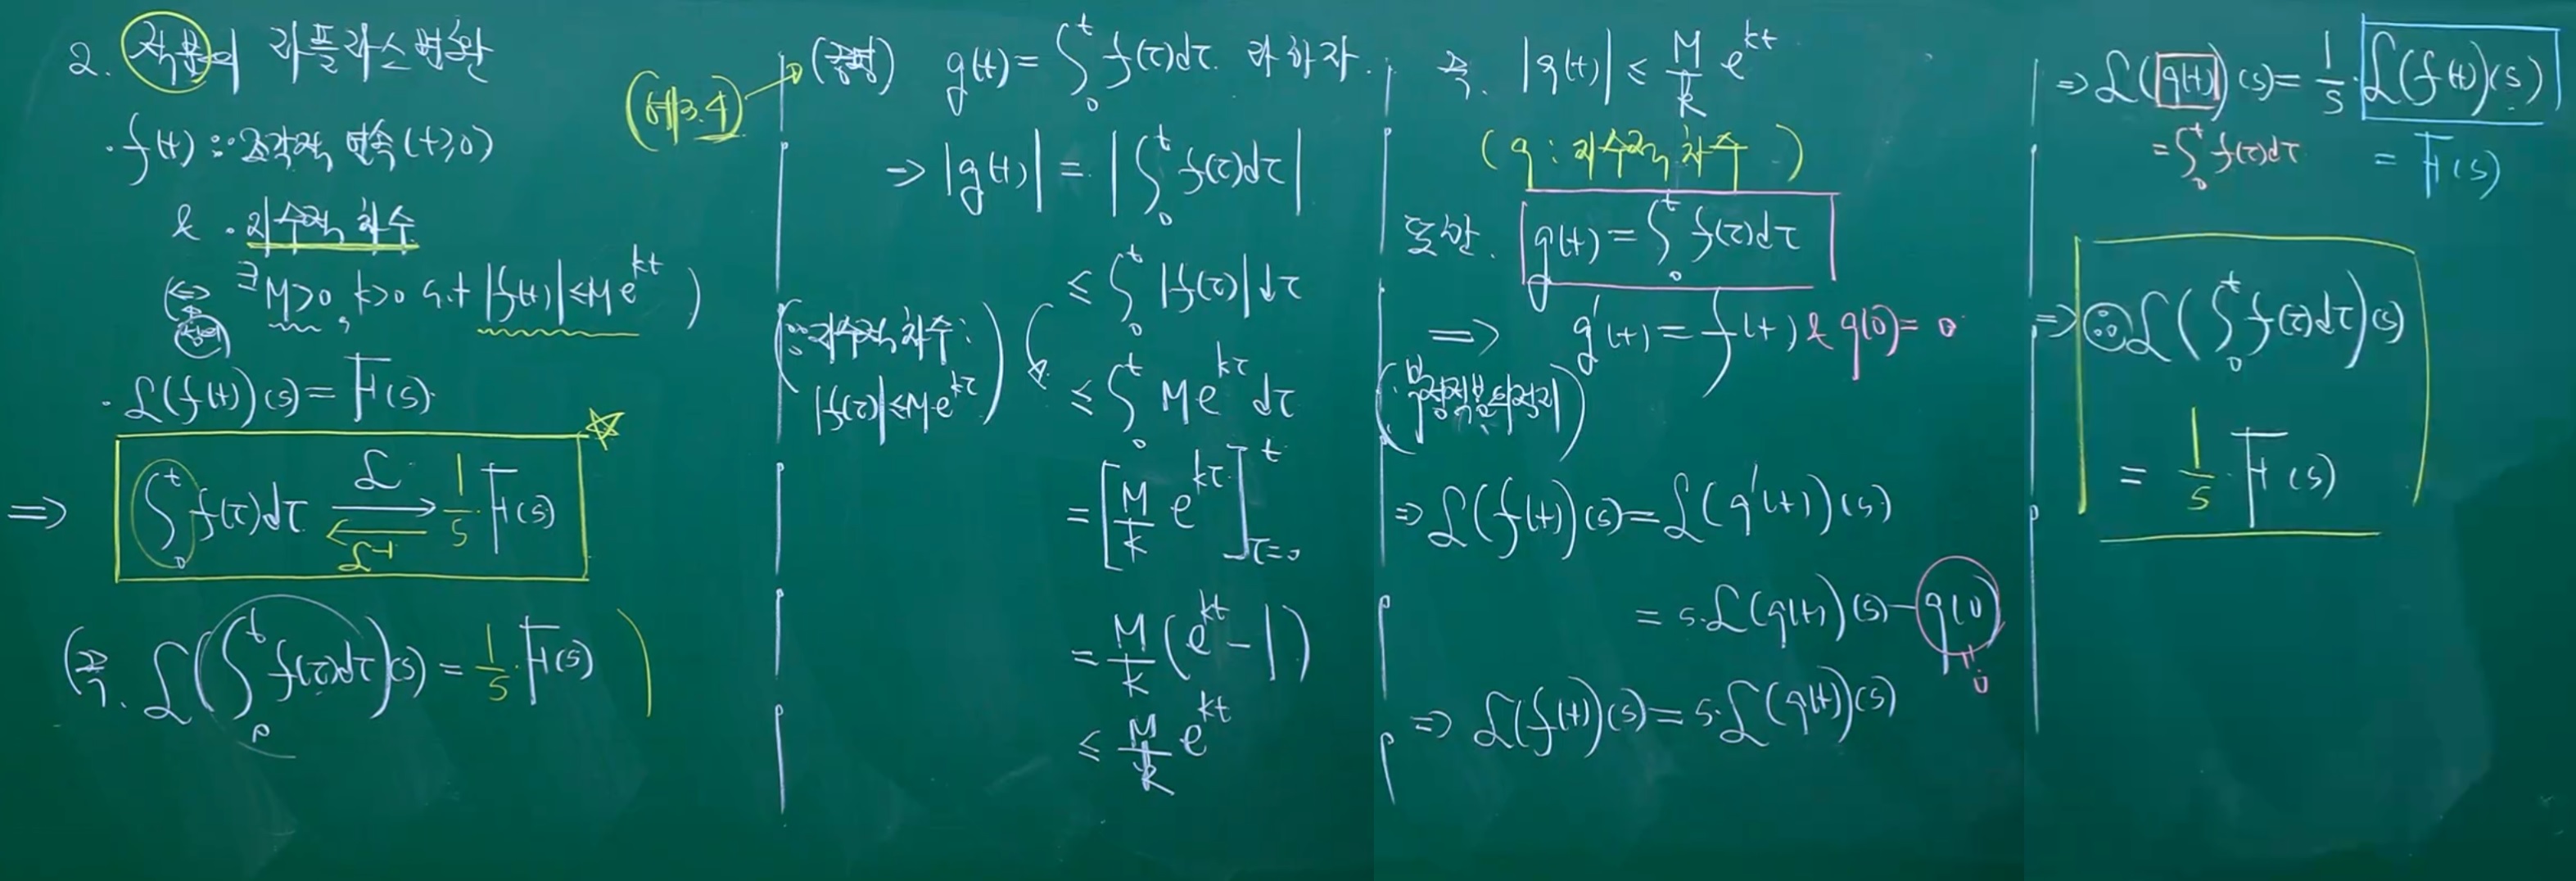 2. 적분의 라플라스 변환
· f(t) : 조각적 연속 (t≥0)
& · 지수적 차수
(⇔ ∃M>0, k>0 s.t |f(t)| ≤ Me^{kt})
정의
· ℒ(f(t))(s) = F(s).
⇒ ∫₀ᵗ f(τ)dτ ⇄ 1/s · F(s) ☆
ℒ
ℒ⁻¹
(즉. ℒ(∫₀ᵗ f(τ)dτ)(s) = 1/s · F(s))
(예3.4)
(증명) g(t) = ∫₀ᵗ f(τ)dτ 라 하자.
⇒ |g(t)| = |∫₀ᵗ f(τ)dτ|
≤ ∫₀ᵗ |f(τ)| dτ
(∵ 지수적 차수:
|f(τ)| ≤ M·e^{kτ})
≤ ∫₀ᵗ Me^{kτ} dτ
= [M/k e^{kτ}]_{τ=0}^{t}
= M/k (e^{kt} − 1)
≤ M/k e^{kt}
즉. |g(t)| ≤ M/k e^{kt}
(g : 지수적 차수)
또한. g(t) = ∫₀ᵗ f(τ)dτ
⇒ g'(t) = f(t) & g(0) = 0
(미적분의 정리)
⇒ ℒ(f(t))(s) = ℒ(g'(t))(s)
= s·ℒ(g(t))(s) − g(0)
= 0
⇒ ℒ(f(t))(s) = s·ℒ(g(t))(s)
⇒ ℒ(g(t))(s) = 1/s · ℒ(f(t))(s)
= ∫₀ᵗ f(τ)dτ = F(s)
⇒ ∴ ℒ(∫₀ᵗ f(τ)dτ)(s)
= 1/s · F(s)